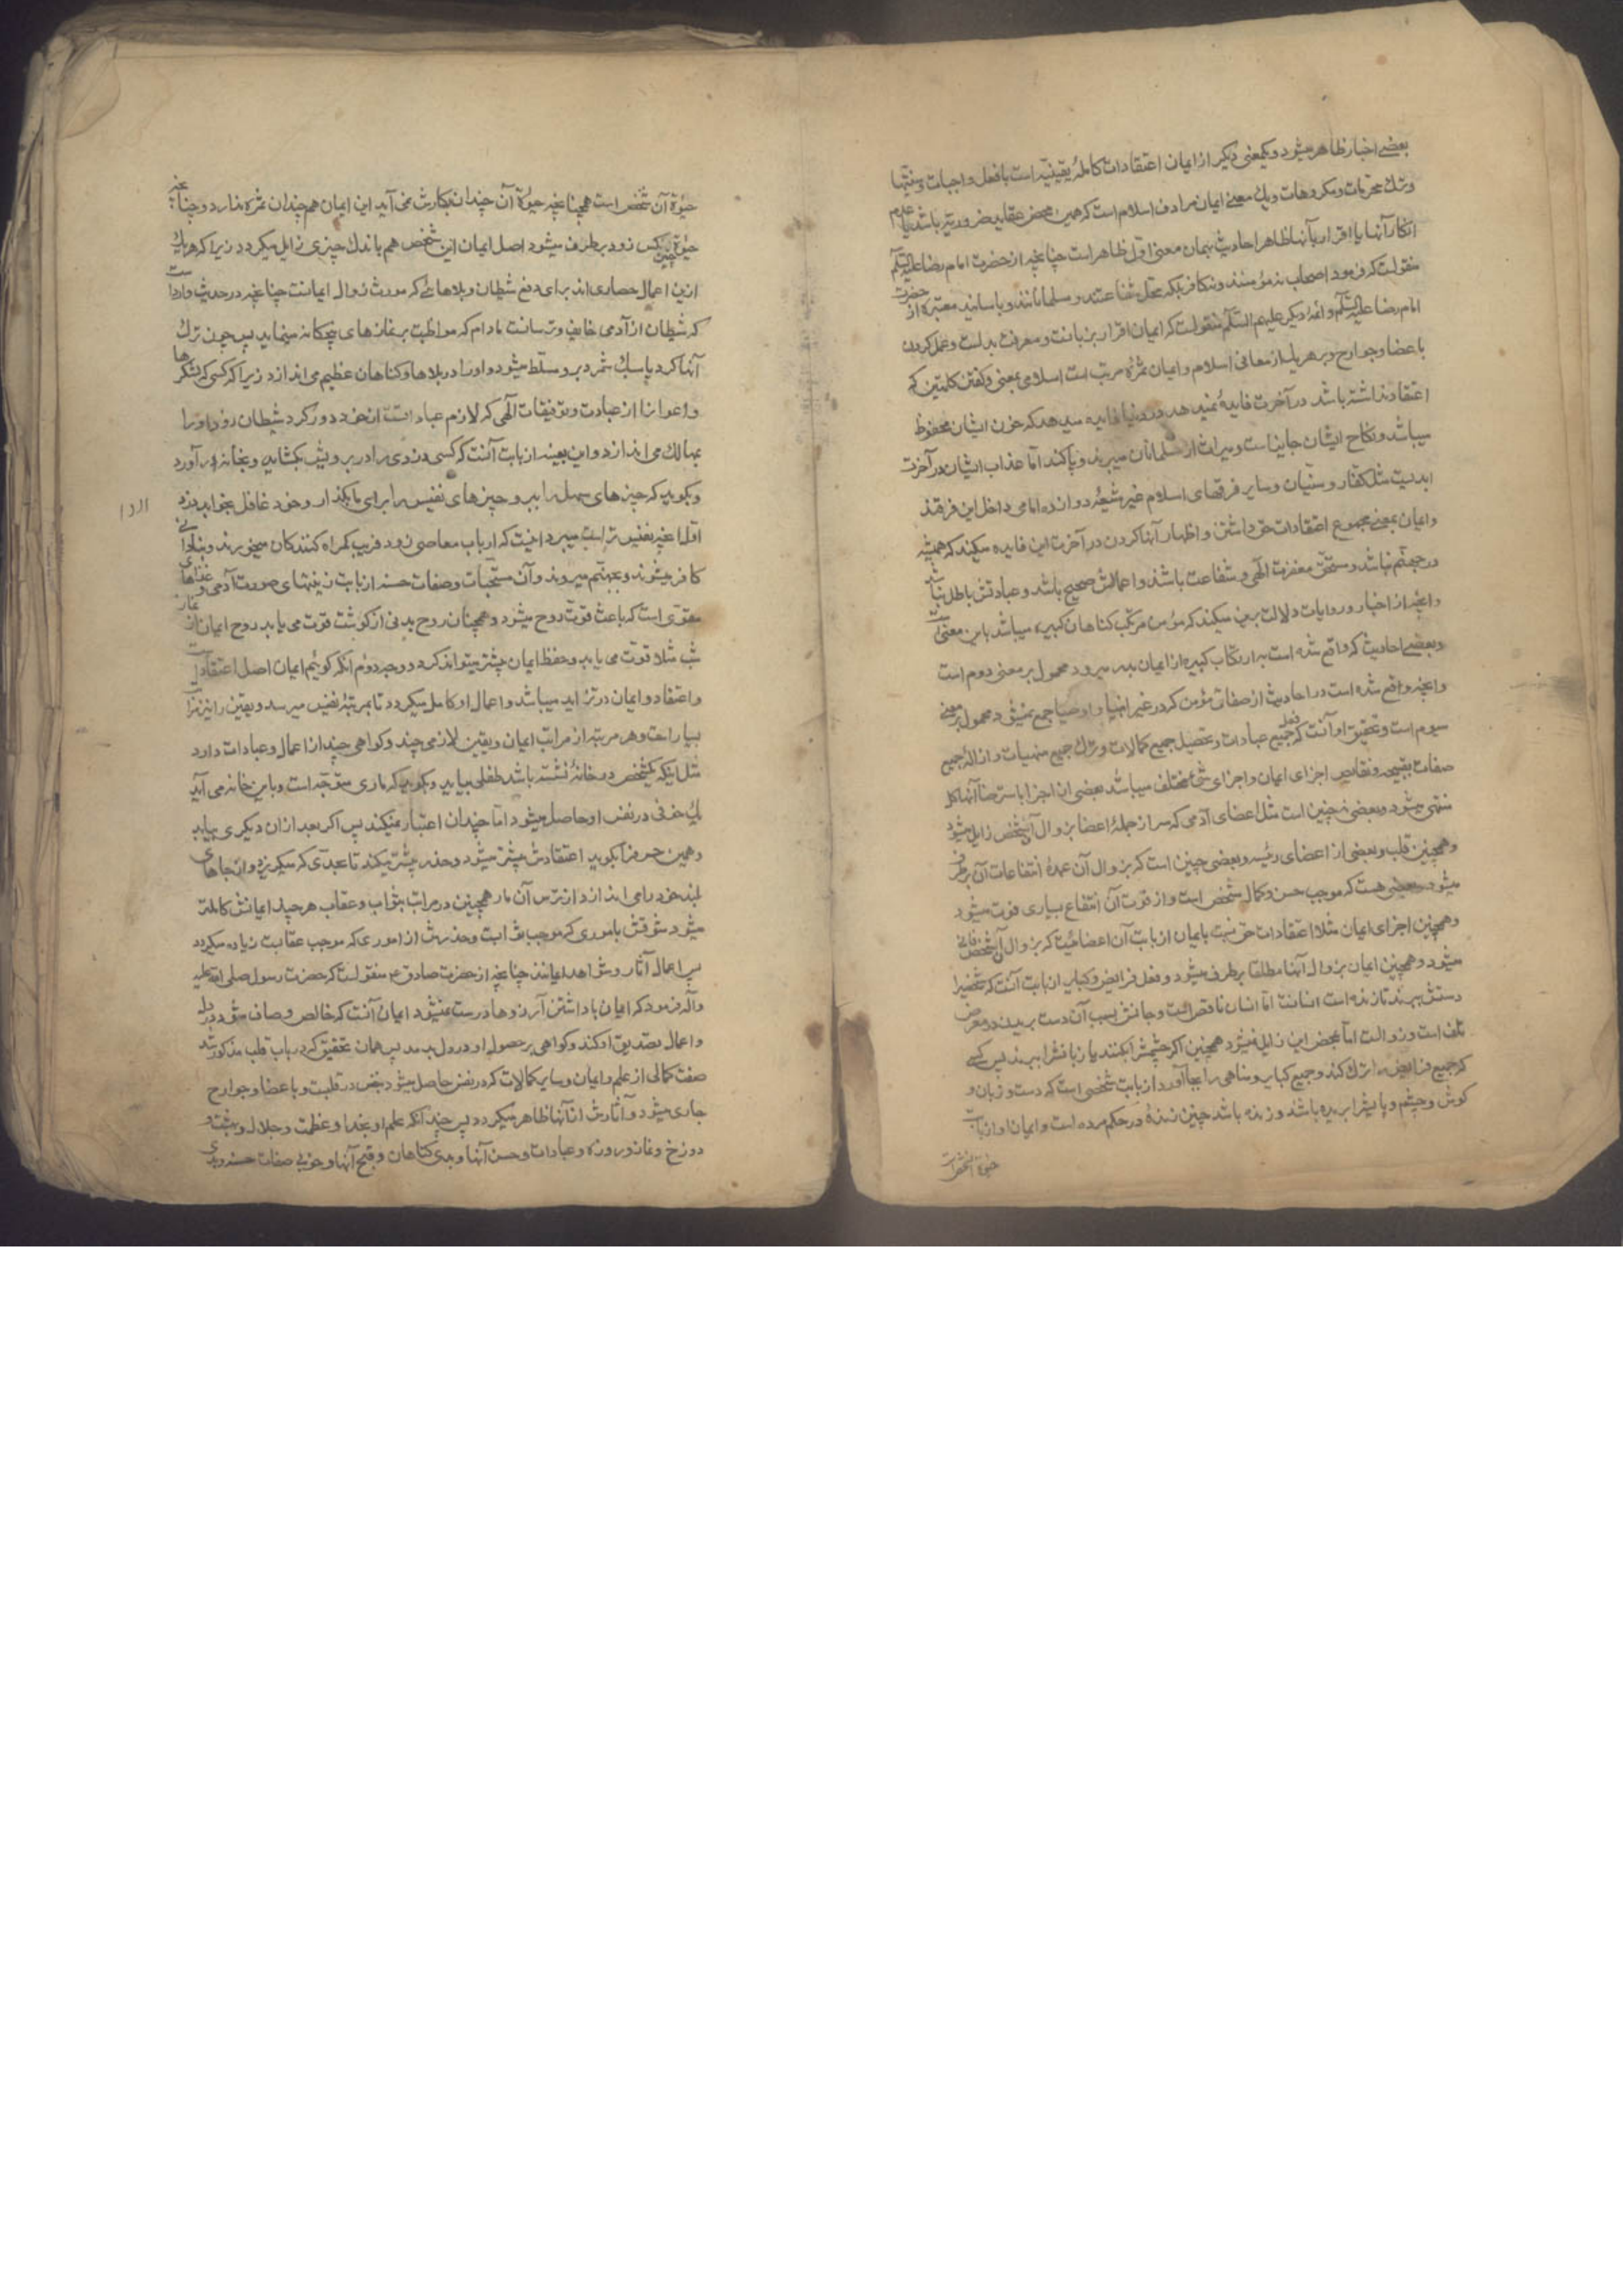 بعضی اخبار ظاهر میشود و یکمعنی دیگر از ایمان اعتقادات کاملۀ یقینیّه است با فعل واجبات و سنتها
و ترک محرمات و مکروهات و یک معنی ایمان مرادف اسلام است که همین محض عقاید ضروریّه باشد با عدم
انکار آنها یا اقرار بآنها ظاهرا احادیث بهمان معنی اول ظاهر است چنانچه از حضرت امام رضا علیه السّلم
منقولست که فرمود اصحاب نه مؤمنند و نه کافر بلکه محل شفاعتند و مسلمانانند و باسانید معتبره از حضرت
امام رضا علیه السّلم و ائمۀ دیگر علیهم السّلم منقولست که ایمان اقرار بزبانست و معرفت بدلست و عمل کردن
باعضا و جوارح و بر هر یک از معانی اسلام و ایمان ثمرۀ مرتب است اسلامی بمعنی گفتن کلمتین که
اعتقاد نداشته باشد در آخرت فایدۀ نمیدهد و در دنیا فایده میدهد که خون ایشان محفوظ
میباشد و نکاح ایشان جایز است و میراث از مسلمانان میبرند و پاکند امّا عذاب ایشان در آخرت
ابدیست مثل کفّار و سنّیان و سایر فرقهای اسلام غیر شیعۀ دوازده امامی داخل این فرقند
و ایمان بمعنی مجموع اعتقادات حق داشتن و اظهار آنها کردن در آخرت این فایده میکند که همیشه
در جهنّم نباشد و مستحق مغفرت الهی و شفاعت باشد و اعمالش صحیح باشد و عبادتش باطل نباشد
و آنچه از اخبار و روایات دلالت برین میکند که مؤمن مرتکب گناهان کبیره میباشد باین معنی است
و بعضی احادیث که واقع شده است که بارتکاب کبیره از ایمان بدر میرود محمول بر معنی دوم است
و آنچه واقع شده است در احادیث از صفات مؤمن که در غیر انبیا و اوصیا جمع نمیشود محمول بر معنی
سیوم است و تحقیق او آنست که فعل جمیع عبادات و تحصیل جمیع کمالات و ترک جمیع منهیات و ازالۀ جمیع
صفات قبیحه و نقایص اجزای ایمان و اجزای شئ مختلف میباشد بعضی ان اجزا با استرضا آنها کل
منتفی میشود و بعضی نه چنین است مثل اعضای آدمی که سر از جملۀ اعضا بزوال آن شخص زایل میشود
و همچنین قلب و بعضی از اعضای رئیسه و بعضی چنین است که بزوال آن عمدۀ انتفاعات آن برطرف
میشود و بعضی هست که موجب حسن و کمال شخص است و از فوت آن انتفاع بسیاری فوت میشود
و همچنین اجزای ایمان مثلا اعتقادات حق نسبت بایمان از بابت آن اعضائیست که بزوال آن شخص فانی
میشود و همچنین ایمان بزوال آنها مطلقا برطرف میشود و فعل فرایض و کبایر از بابت آنست که شخصیرا
دستش ببرند تا زنده است انسانست امّا انسان ناقص است و جانش بسبب آن دست بریدن در معرض
تلف است و زوالست امّا بمحض این زایل نمیشود همچنین اگر چشمش را بکنند یا زبانش را ببرند پس کسی
که جمیع فرایض را ترک کند و جمیع کبایر و مناهی را بجا آورد از بابت شخصی است که دست و زبان و
گوش و چشم و پایش را بریده باشد و زنده باشد چنین زندۀ در حکم مرده است و ایمان او از بابت
حیوة آنشخص است
حیوة آن شخص است همچنانچه حیوة آن چندان بکارش نمی آید این ایمان هم چندان ثمره ندارد و چنانچه
حیوة چنین کس زود برطرف میشود اصل ایمان این شخص هم باندک چیزی زایل میکردد زیرا که هر یک
ازین اعمال حصاری اند برای دفع شیطان و بلاهائی که مورث زوال ایمانست چنانچه در حدیث وارداست
که شیطان از آدمی خایف و ترسانست مادام که مواظبت بر نمازهای پنجگانه مینماید پس چون ترک
آنها کرد یا سبک شمرد برو مسلّط میشود و او را در بلاها و گناهان عظیم می اندازد زیرا که کسی که لشکرها
و اعوانرا از عبادت و توفیقات الهی که لازم عباداتست از خود دور کرد شیطان زود او را
بمهالک می اندازد و این بعینه از بابت آنست که کسی دزدی را در برویش بکشاید و بخانه در آورد
و بگوید که چیزهای سهل را ببر و چیزهای نفیس را برای ما بگذار و خود غافل بخوابد دزد
اوّل آنچه نفیس تر است میبرد اینست که ارباب معاصی زود فریب گمراه کنندگان میخورند و
کافر میشوند و بجهنّم میروند و آن مستحبات و صفات حسنه از بابت زینتهای صورت آدمی و غذاهای
مقوّی است که باعث قوّت روح میشود و همچنان روح بدنی از گوشت قوّت می یابد روح ایمان از نماز
شب مثلا قوّت می یابد و حفظ ایمان بیشتر میتواند کرد و وجه دوّم آنکه گوئیم ایمان اصل اعتقاد است
و اعتقاد و ایمان در تزاید میباشد و اعمال او کامل میکردد تا بمرتبۀ نفیس میرسد و یقین را نیز مراتب
بسیار است و هر مرتبه از مراتب ایمان و یقین لازمی چند و کواهی چند از اعمال و عبادات دارد
مثل اینکه یکشخص در خانۀ نشسته باشد طفلی بیاید و بگوید که ماری متوجّه است و باین خانه می آید
یک خوفی در نفس او حاصل میشود امّا چندان اعتبار نمیکند پس اگر بعد از ان دیگری بیاید
و همین حرف را بگوید اعتقادش بیشتر میشود و حذر بیشتر میکند تا بحدّی که میگریزد و از جاهای
بلند خود را می اندازد از ترس آن مار همچنین در مراتب ثواب و عقاب هر چند ایمانش کاملتر
میشود شوقش باموری که موجب ثوابست و حذرش از اموری که موجب عقابست زیاده میکردد
پس اعمال آثار و شواهد ایمانند چنانچه از حضرت صادق ع منقولست که حضرت رسول صلی الله علیه
و آله فرمود که ایمان با داشتن آرزوها درست نمیشود ایمان آنست که خالص و صاف شود در دل
و اعمال تصدیق او کند و کواهی بر حصول او در دل بدهد پس همان تحقیق که در باب قلب مذکور شد
صفت کمالی از علم و ایمان و سایر کمالات که در نفس حاصل میشود بیخش در قلبست و باعضا و جوارح
جاری میشود و آثارش از آنها ظاهر میکردد پس چندانکه علم او بخدا و عظمت و جلال و بهشت و
دوزخ و نماز و روزه و عبادات و حسن آنها و بدی گناهان و قبح آنها و خوبی صفات حسنه و بدی